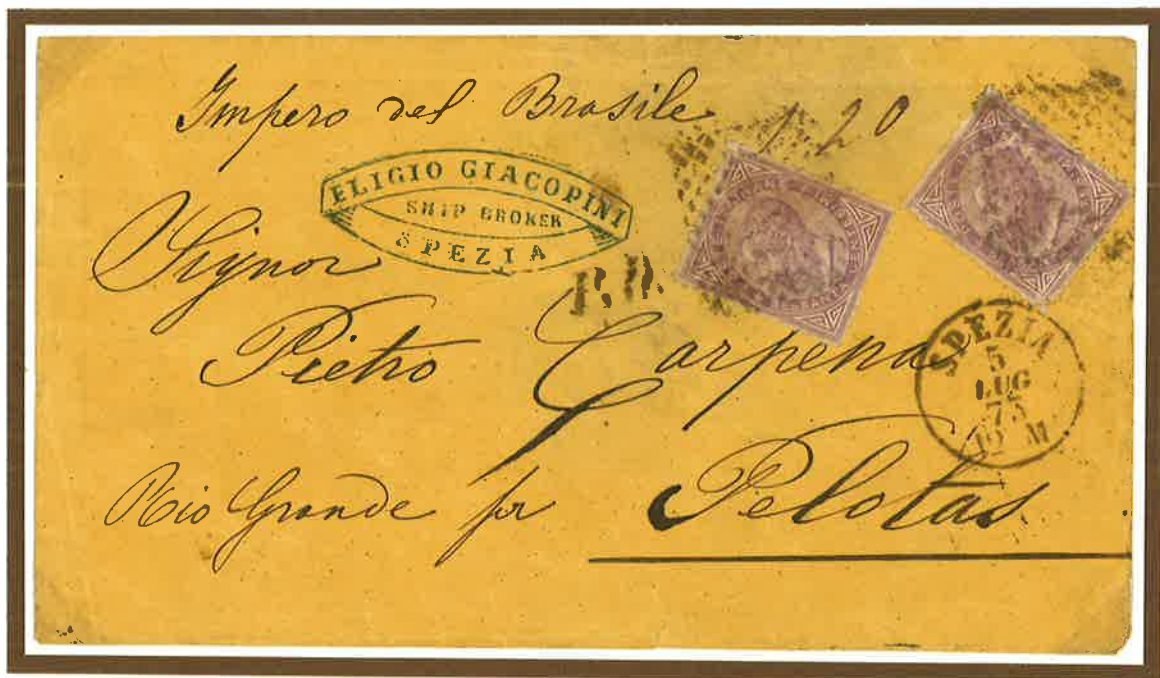 Impero del Brasile
1.20
ELIGIO GIACOPINI
SHIP BROKER
SPEZIA
Signor
P.D.
Pietro Carpena
SPEZIA
5
LUG
75
10 M
Rio Grande per Pelotas